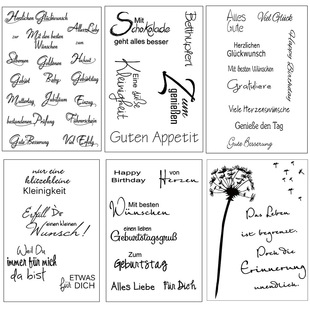 Herzlichen Glückwunsch
Alles Liebe
zur
Mit den besten
Wünschen
zum
Silbernen
Goldenen
Hochzeit
Geburt
Baby
Geburtstag
Muttertag
Jubiläum
bestandenen
Prüfung
Gute Besserung
Viel Erfolg
Mit
Schokolade
geht alles besser
Betthupferl
Eine süße
Kleinigkeit
Zum
genießen
Guten Appetit
Alles
Gute
Viel Glück
Happy Birthday
Herzlichen
Glückwunsch
Mit besten Wünschen
Gratuliere
Viele Herzenswünsche
Genieße den Tag
Gute Besserung
nur eine
klitzekleine
Kleinigkeit
Erfüll Dir
einen kleinen
Wunsch!
Weil Du
immer für mich
da bist
ETWAS
für DICH
Happy
Birthday
von
Herzen
Mit besten
Wünschen
einen lieben
Geburtstagsgruß
Zum
Geburtstag
Alles Liebe
Für Dich
Das Leben
ist begrenzt.
Doch die
Erinnerung
unendlich.